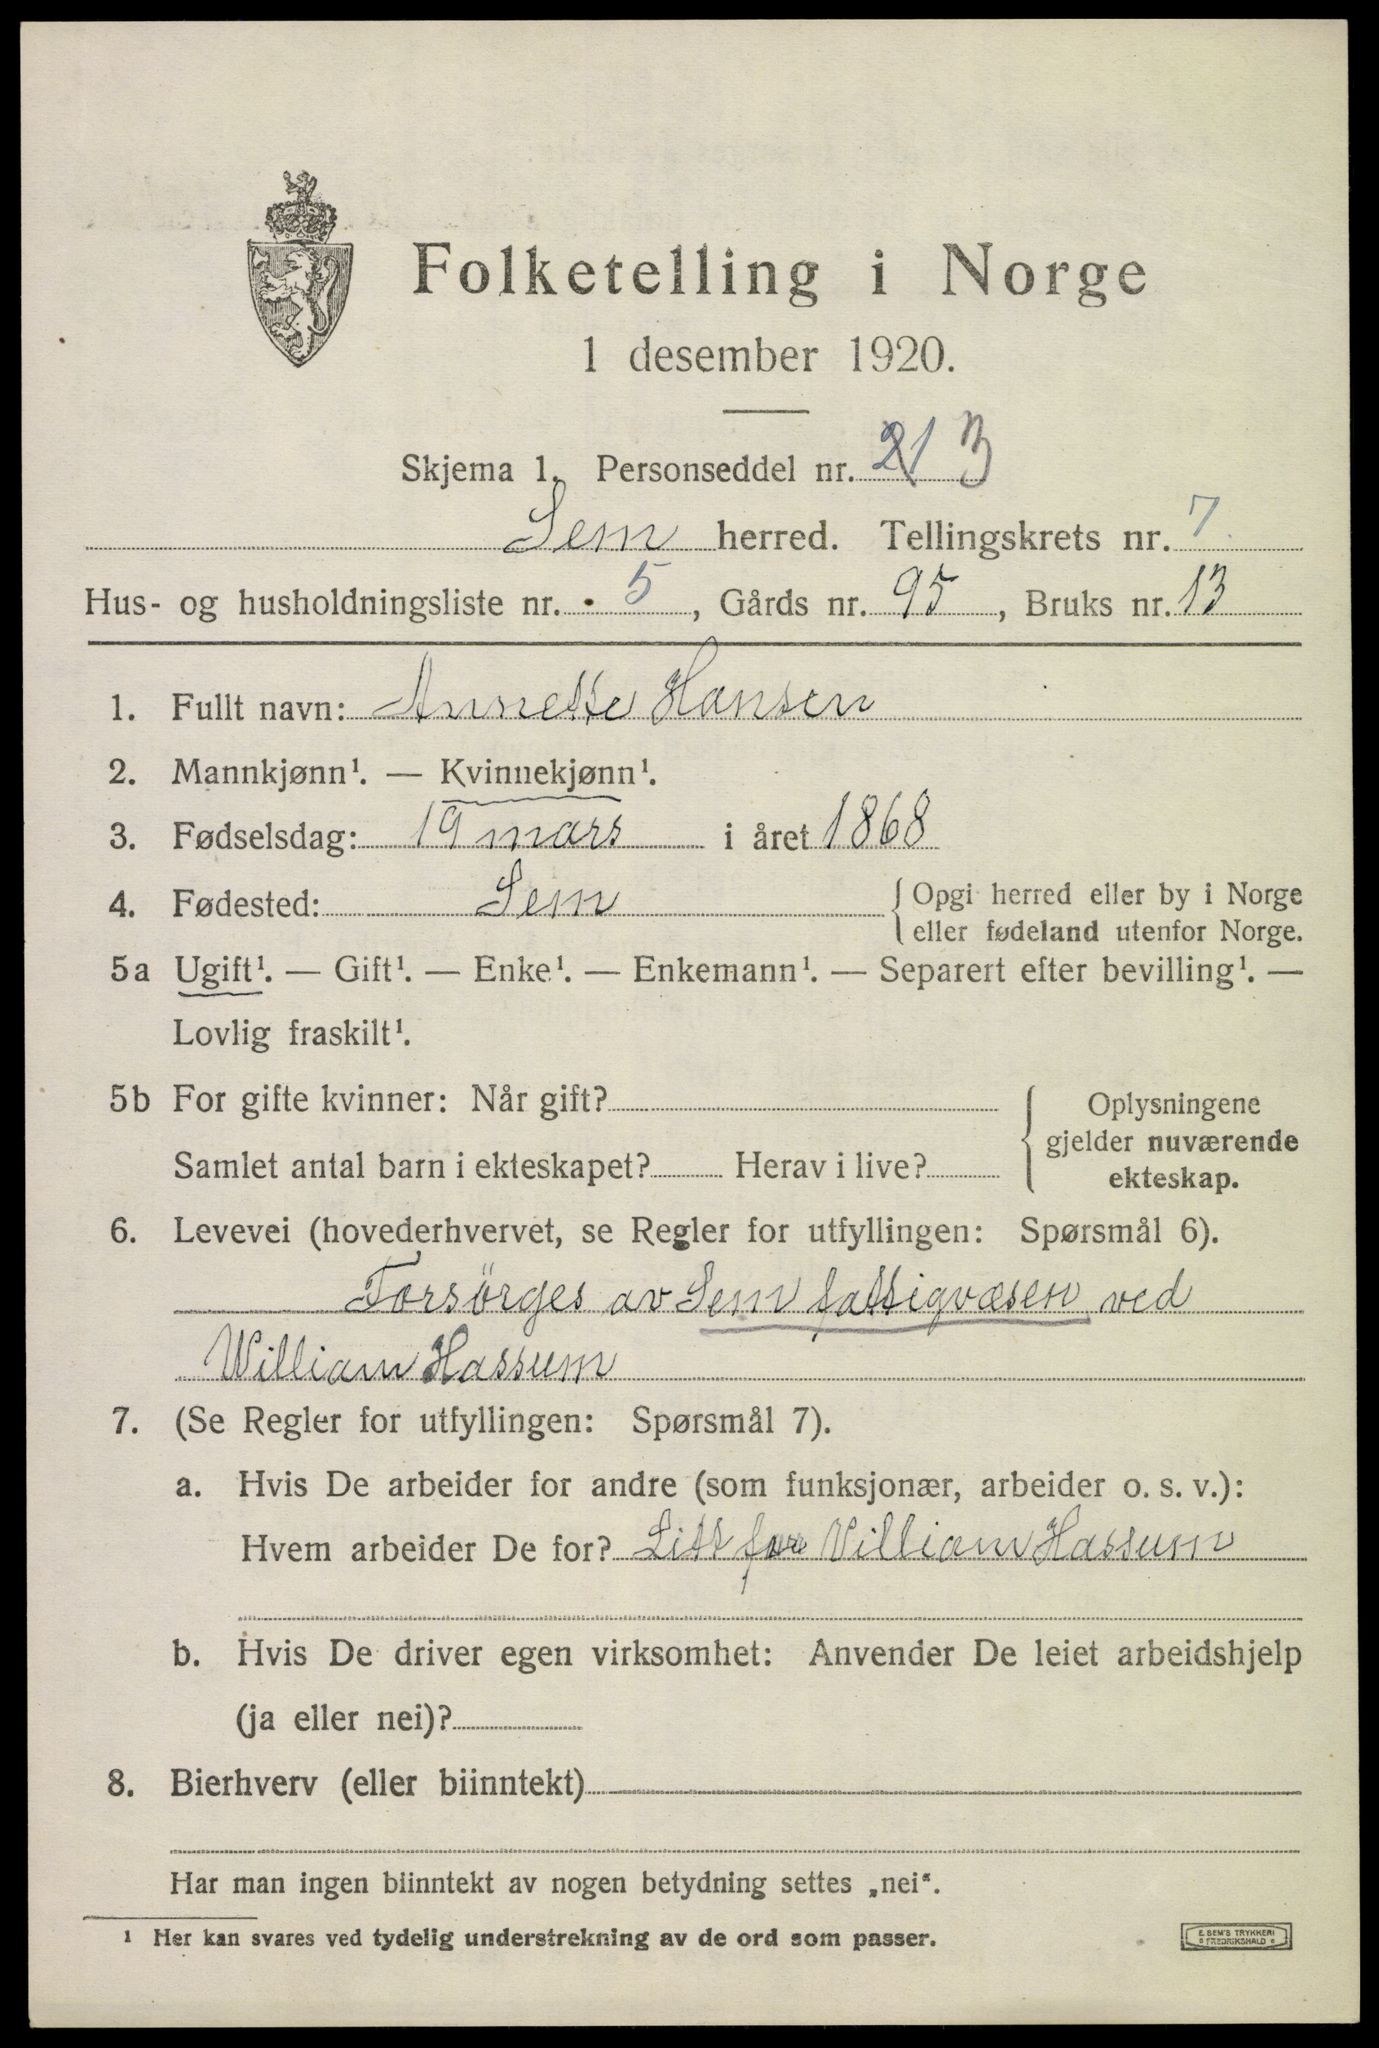 Folketelling i Norge
1 desember 1920.
Skjema 1. Personseddel nr. 21 3
Sem herred. Tellingskrets nr. 7
Hus- og husholdningsliste nr. 5, Gårds nr. 95, Bruks nr. 13
1. Fullt navn: Annette Hansen
2. Mannkjønn¹. — Kvinnekjønn¹.
3. Fødselsdag: 19 mars i året 1868
4. Fødested: Sem { Opgi herred eller by i Norge
eller fødeland utenfor Norge.
5a Ugift¹. — Gift¹. — Enke¹. — Enkemann¹. — Separert efter bevilling¹. —
Lovlig fraskilt¹.
5b For gifte kvinner: Når gift?
Samlet antal barn i ekteskapet? Herav i live?
{ Oplysningene
gjelder nuværende
ekteskap.
6. Levevei (hovederhvervet, se Regler for utfyllingen: Spørsmål 6).
Forsörges av Sem fattigvæsen ved
William Hassum
7. (Se Regler for utfyllingen: Spørsmål 7).
a. Hvis De arbeider for andre (som funksjonær, arbeider o. s. v.):
Hvem arbeider De for? Litt for William Hassum
b. Hvis De driver egen virksomhet: Anvender De leiet arbeidshjelp
(ja eller nei)?
8. Bierhverv (eller biinntekt)
Har man ingen biinntekt av nogen betydning settes „nei“.
¹ Her kan svares ved tydelig understrekning av de ord som passer.
E. SEM'S TRYKKERI
FREDRIKSHALD